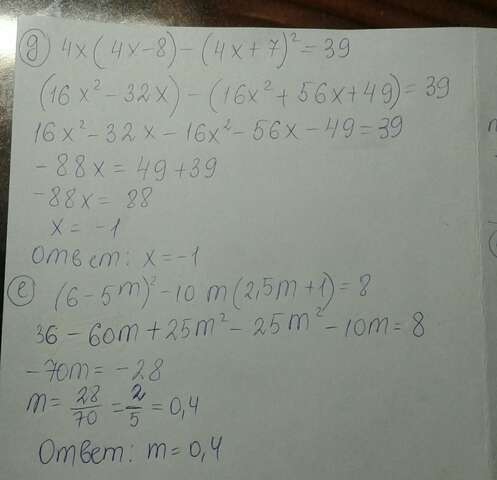 д) 4x(4x-8)-(4x+7)²=39
(16x²-32x)-(16x²+56x+49)=39
16x²-32x-16x²-56x-49=39
-88x=49+39
-88x=88
x=-1
Ответ: x=-1
е) (6-5m)²-10m(2,5m+1)=8
36-60m+25m²-25m²-10m=8
-70m=-28
m=28/70=2/5=0,4
Ответ: m=0,4